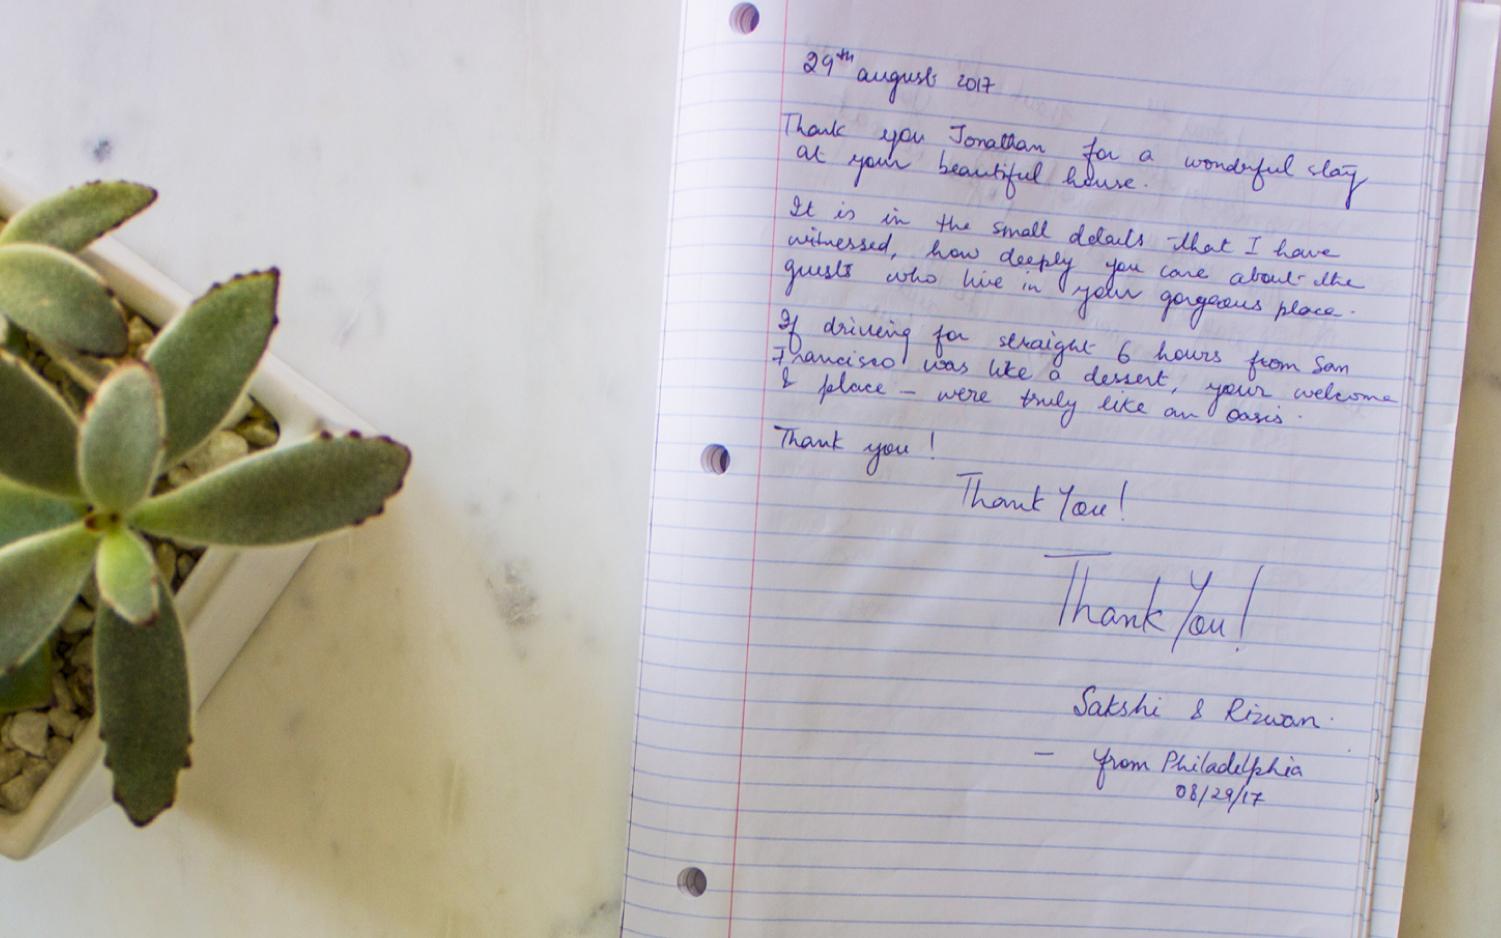 29th august 2017
Thank you Jonathan for a wonderful stay
at your beautiful house.
It is in the small details that I have
witnessed, how deeply you care about the
guests who live in your gorgeous place.
If driving for straight 6 hours from San
Francisco was like a dessert, your welcome
& place – were truly like an oasis.
Thank you!
Thank You!
Thank You!
Sakshi & Rizwan.
– from Philadelphia
08/29/17